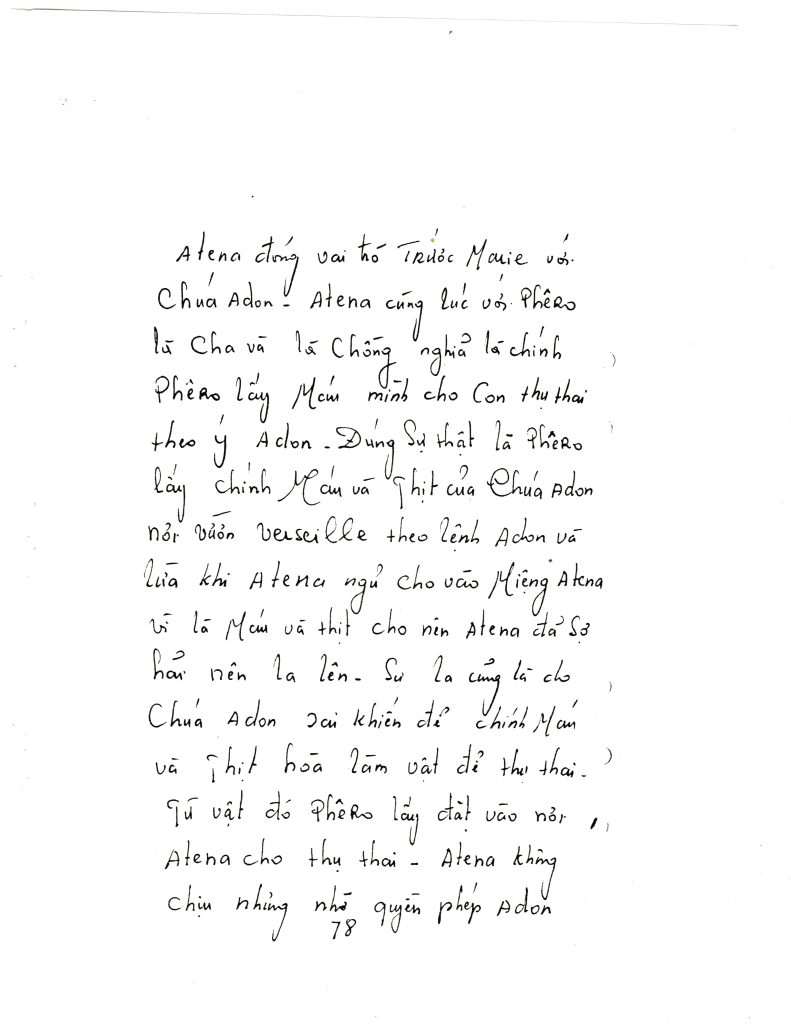 Atena đóng vai trò Trước Marie với
Chúa Adon - Atena cùng lúc với Phêro
là Cha và là Chồng nghĩa là chính
Phêro lấy Máu mình cho Con thụ thai
theo ý Adon - Đúng Sự thật là Phêro
lấy chính Máu và Thịt của Chúa Adon
nởi vườn Verseille theo lệnh Adon và
lừa khi Atena ngủ cho vào Miệng Atena
vì là Máu và thịt cho nên Atena đã Sợ
hải nên la lên - Sự la cũng là do
Chúa Adon sai khiến để chính Máu
và Thịt hòa làm vật để thụ thai -
Từ vật đó Phêro lấy đặt vào nởi
Atena cho thụ thai - Atena không
chịu nhưng nhờ quyền phép Adon
78